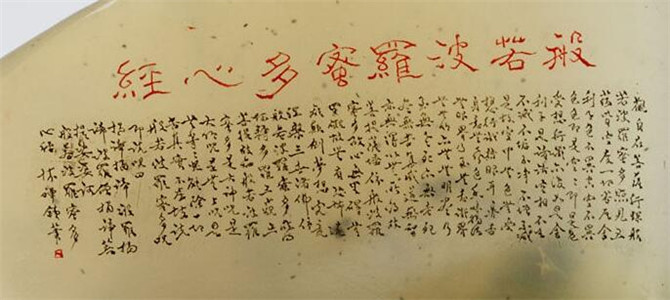 般若波羅蜜多心經
觀自在菩薩行深般
若波羅蜜多照見五
蘊皆空度一切苦厄舍
利子色不異空空不異
色色即是空空即是色
受想行識亦復如是舍
利子是諸法空相不生
不滅不垢不淨不增不減
是故空中無色無受
想行識無眼耳鼻舌
身意無色聲香味觸法
無眼界乃至無意識界
無無明亦無無明盡乃
至無老死亦無老死
盡無苦集滅道無智
亦無得以無所得故
菩提薩埵依般若波羅
蜜多故心無罣礙無
罣礙故無有恐怖遠
離顛倒夢想究竟
涅槃三世諸佛依
般若波羅蜜多故
得阿耨多羅三藐三
菩提故知般若波羅
蜜多是大神咒是
大明咒是無上咒是
無等等咒能除一切
苦真實不虛故說
般若波羅蜜多咒
即說咒曰
揭諦揭諦波羅揭
諦波羅僧揭諦菩
提薩婆訶
般若波羅蜜多
心經